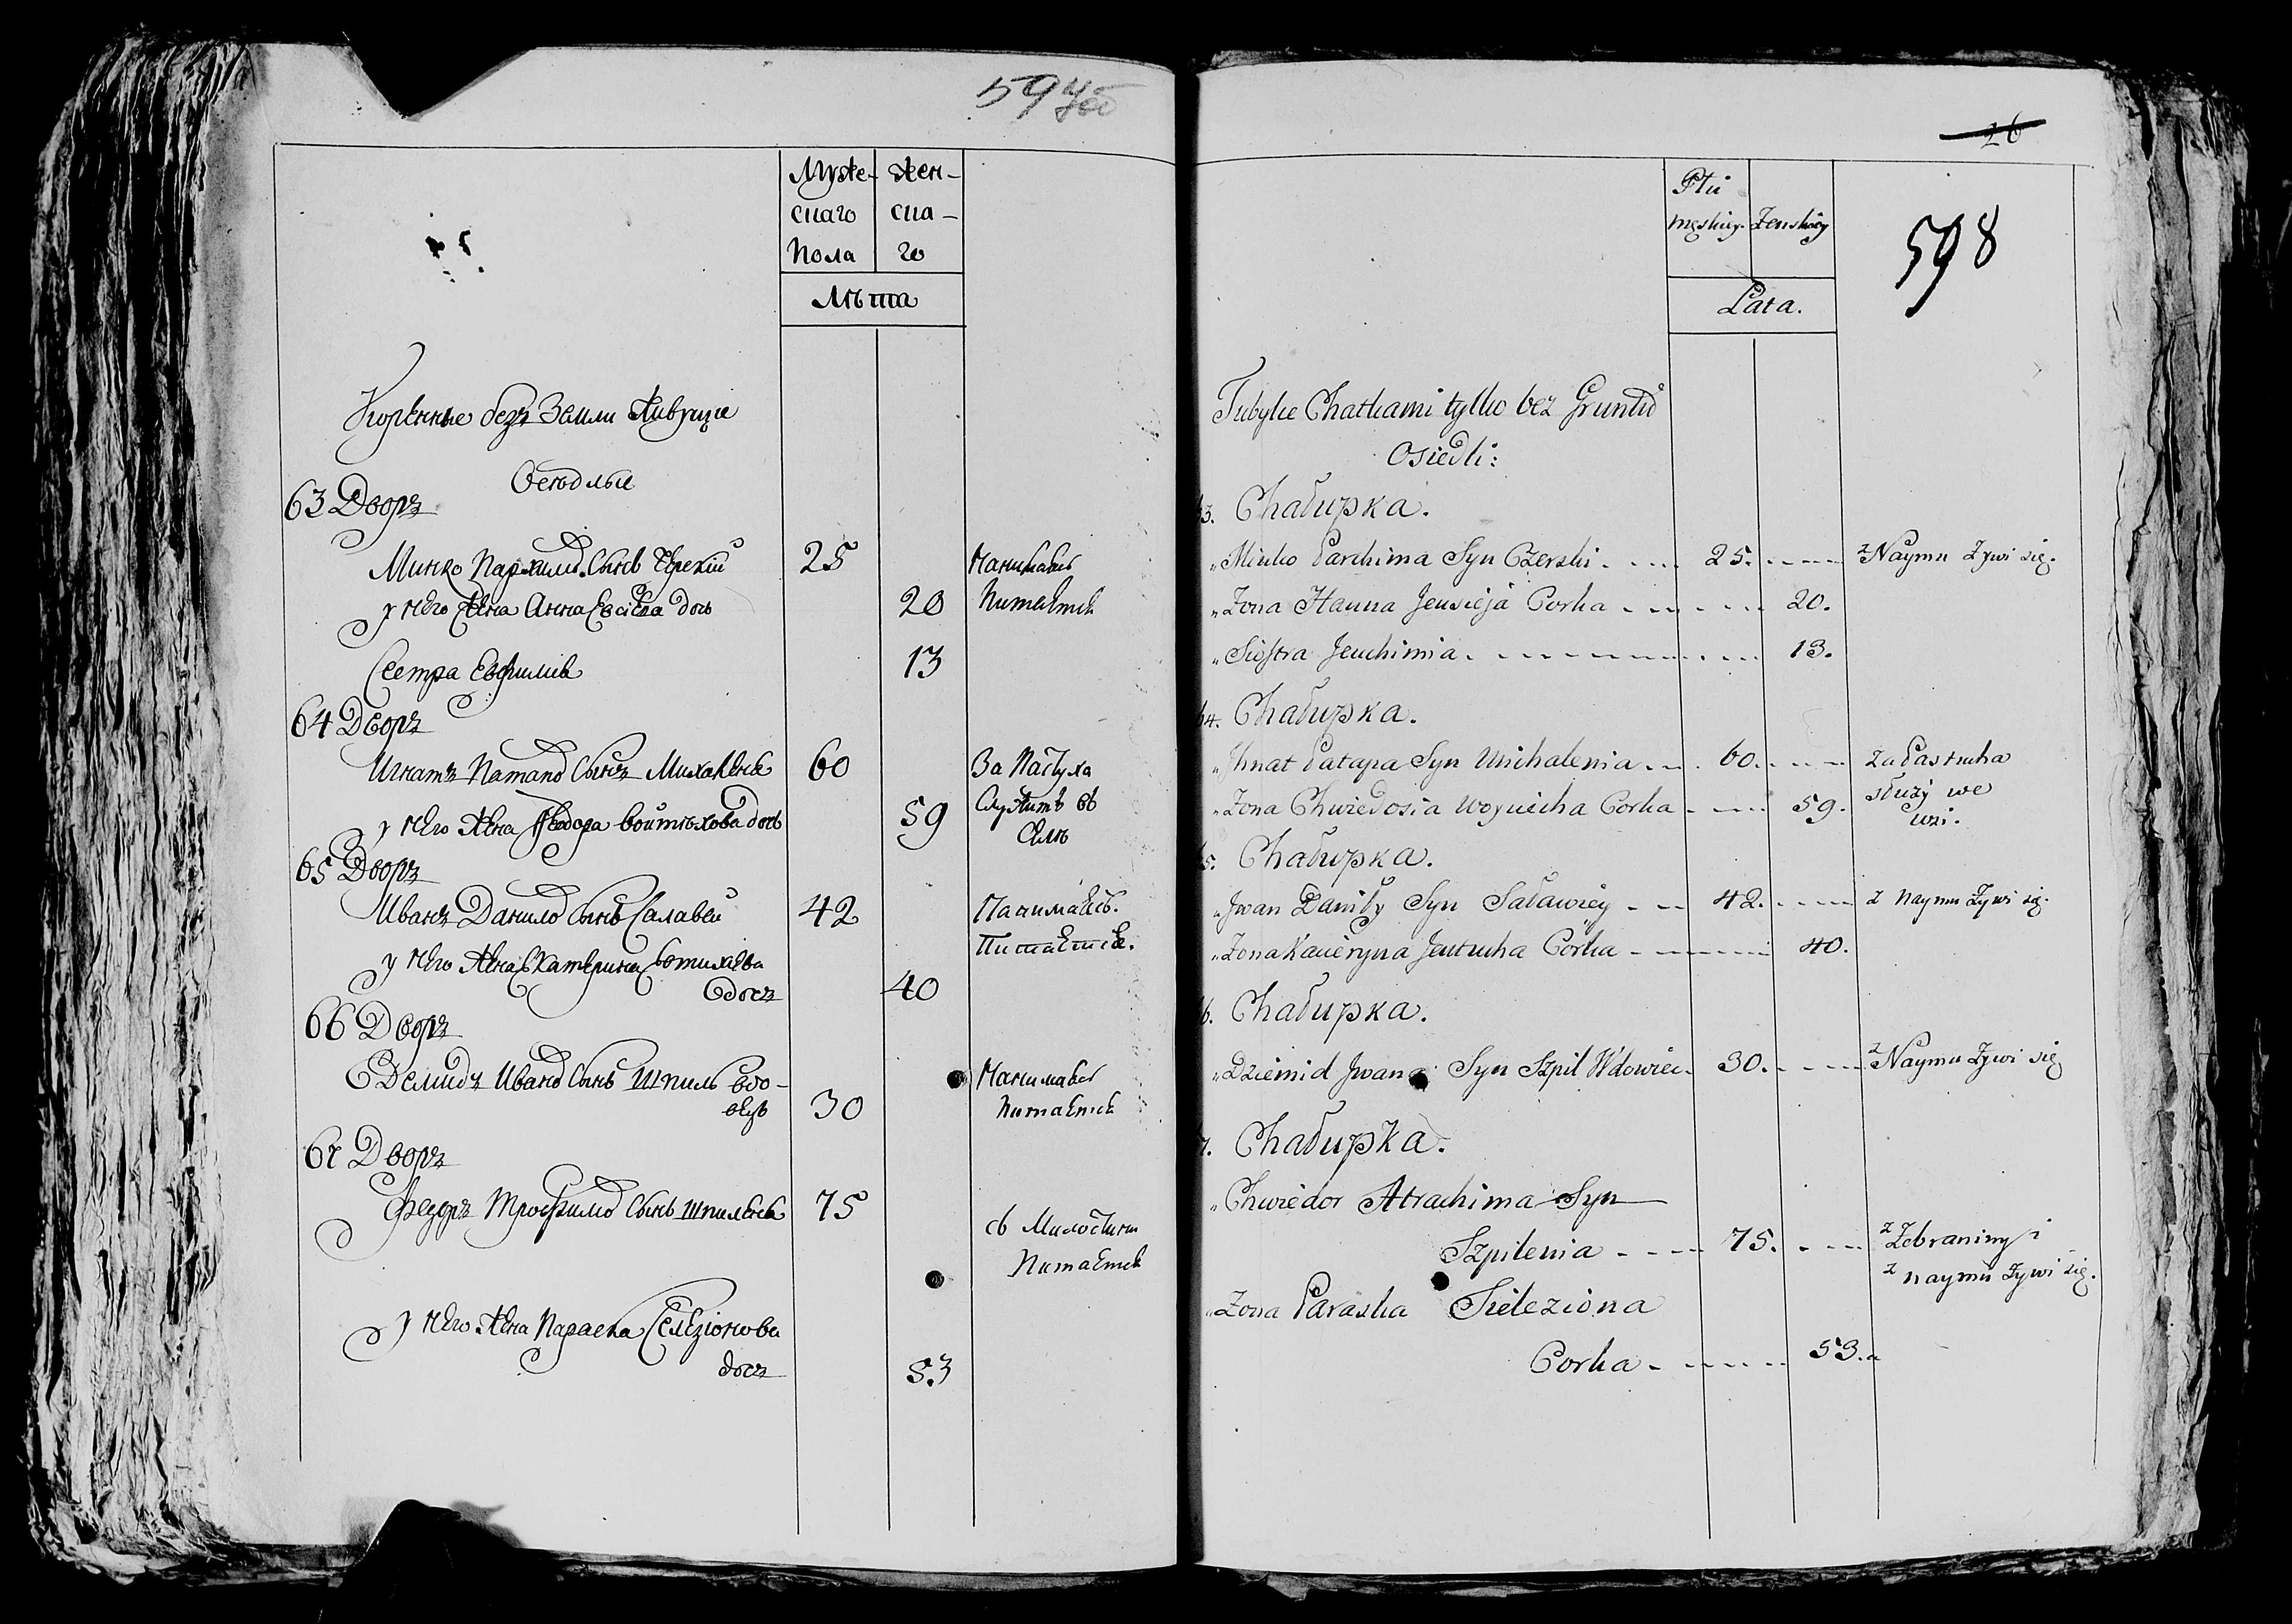 597 об
Муже- жен-
скаго ска-
Пола го
Лѣта
Корѣнные безъ Земли живущіе
Осѣдлые
63 Дворъ
Минко Пархима Сынъ Черскій 25 Наимаѣтъ
у него жена Анна Евсѣева дочь 20 Питаѣтся
Сестра Евфимия 13
64 Дворъ
Игнатъ Патапа Сынъ Михаленя 60 За Пастуха
у него жена Феодора Войтѣхова дочь 59 Служитъ въ
Селѣ
65 Дворъ
Иванъ Данило Сынъ Салавей 42 Наимаѣтъ.
у него жена Екатерина Евтихіева Питаѣтся.
дочъ 40
66 Дворъ
Демидъ Ивано Сынъ Шпиль вдо- Наимаѣтъ
вецъ 30 Питаѣтся
67 Дворъ
Федоръ Трофимо Сынъ Шпиленя 75
съ Милостини
Питаѣтся
у него жена Параска Селезіонова
дочъ 53
26
598
Płci
męskiey. Żenskiey
Lata.
Tubylce Chatkami tylko bez Gruntu
Osiedli:
63. Chałupka.
„ Minko Parchima Syn Czerski . . . . 25. - - - - z Naymu Żywi się.
„ Żona Hanna Jeusieja Corka - - - - - - 20.
„ Siostra Jeuchimia . - - - - - - - 13.
64. Chałupka.
„ Jhnat Patapa Syn Michalenia . - . 60. - - - za Pastucha
„ Żona Chwiedosia Woyciecha Corka - - - - 59. służy we
wsi.
65. Chałupka.
„ Jwan Daniły Syn Saławiey - - 42. - - - - z Naymu Żywi się.
„ Żona Kacieryna Jeutucha Corka - - - - - 40.
66. Chałupka.
„ Dziemid Jwana Syn Szpil Wdowiec - 30. - - - - z Naymu Żywi się
67. Chałupka.
„ Chwiedor Atrachima Syn
Szpilenia - - - - 75. - - - - z Żebraniny i
z naymu Żywi się.
„ Żona Paraska Sieleziona
Corka - - - - - - 53.